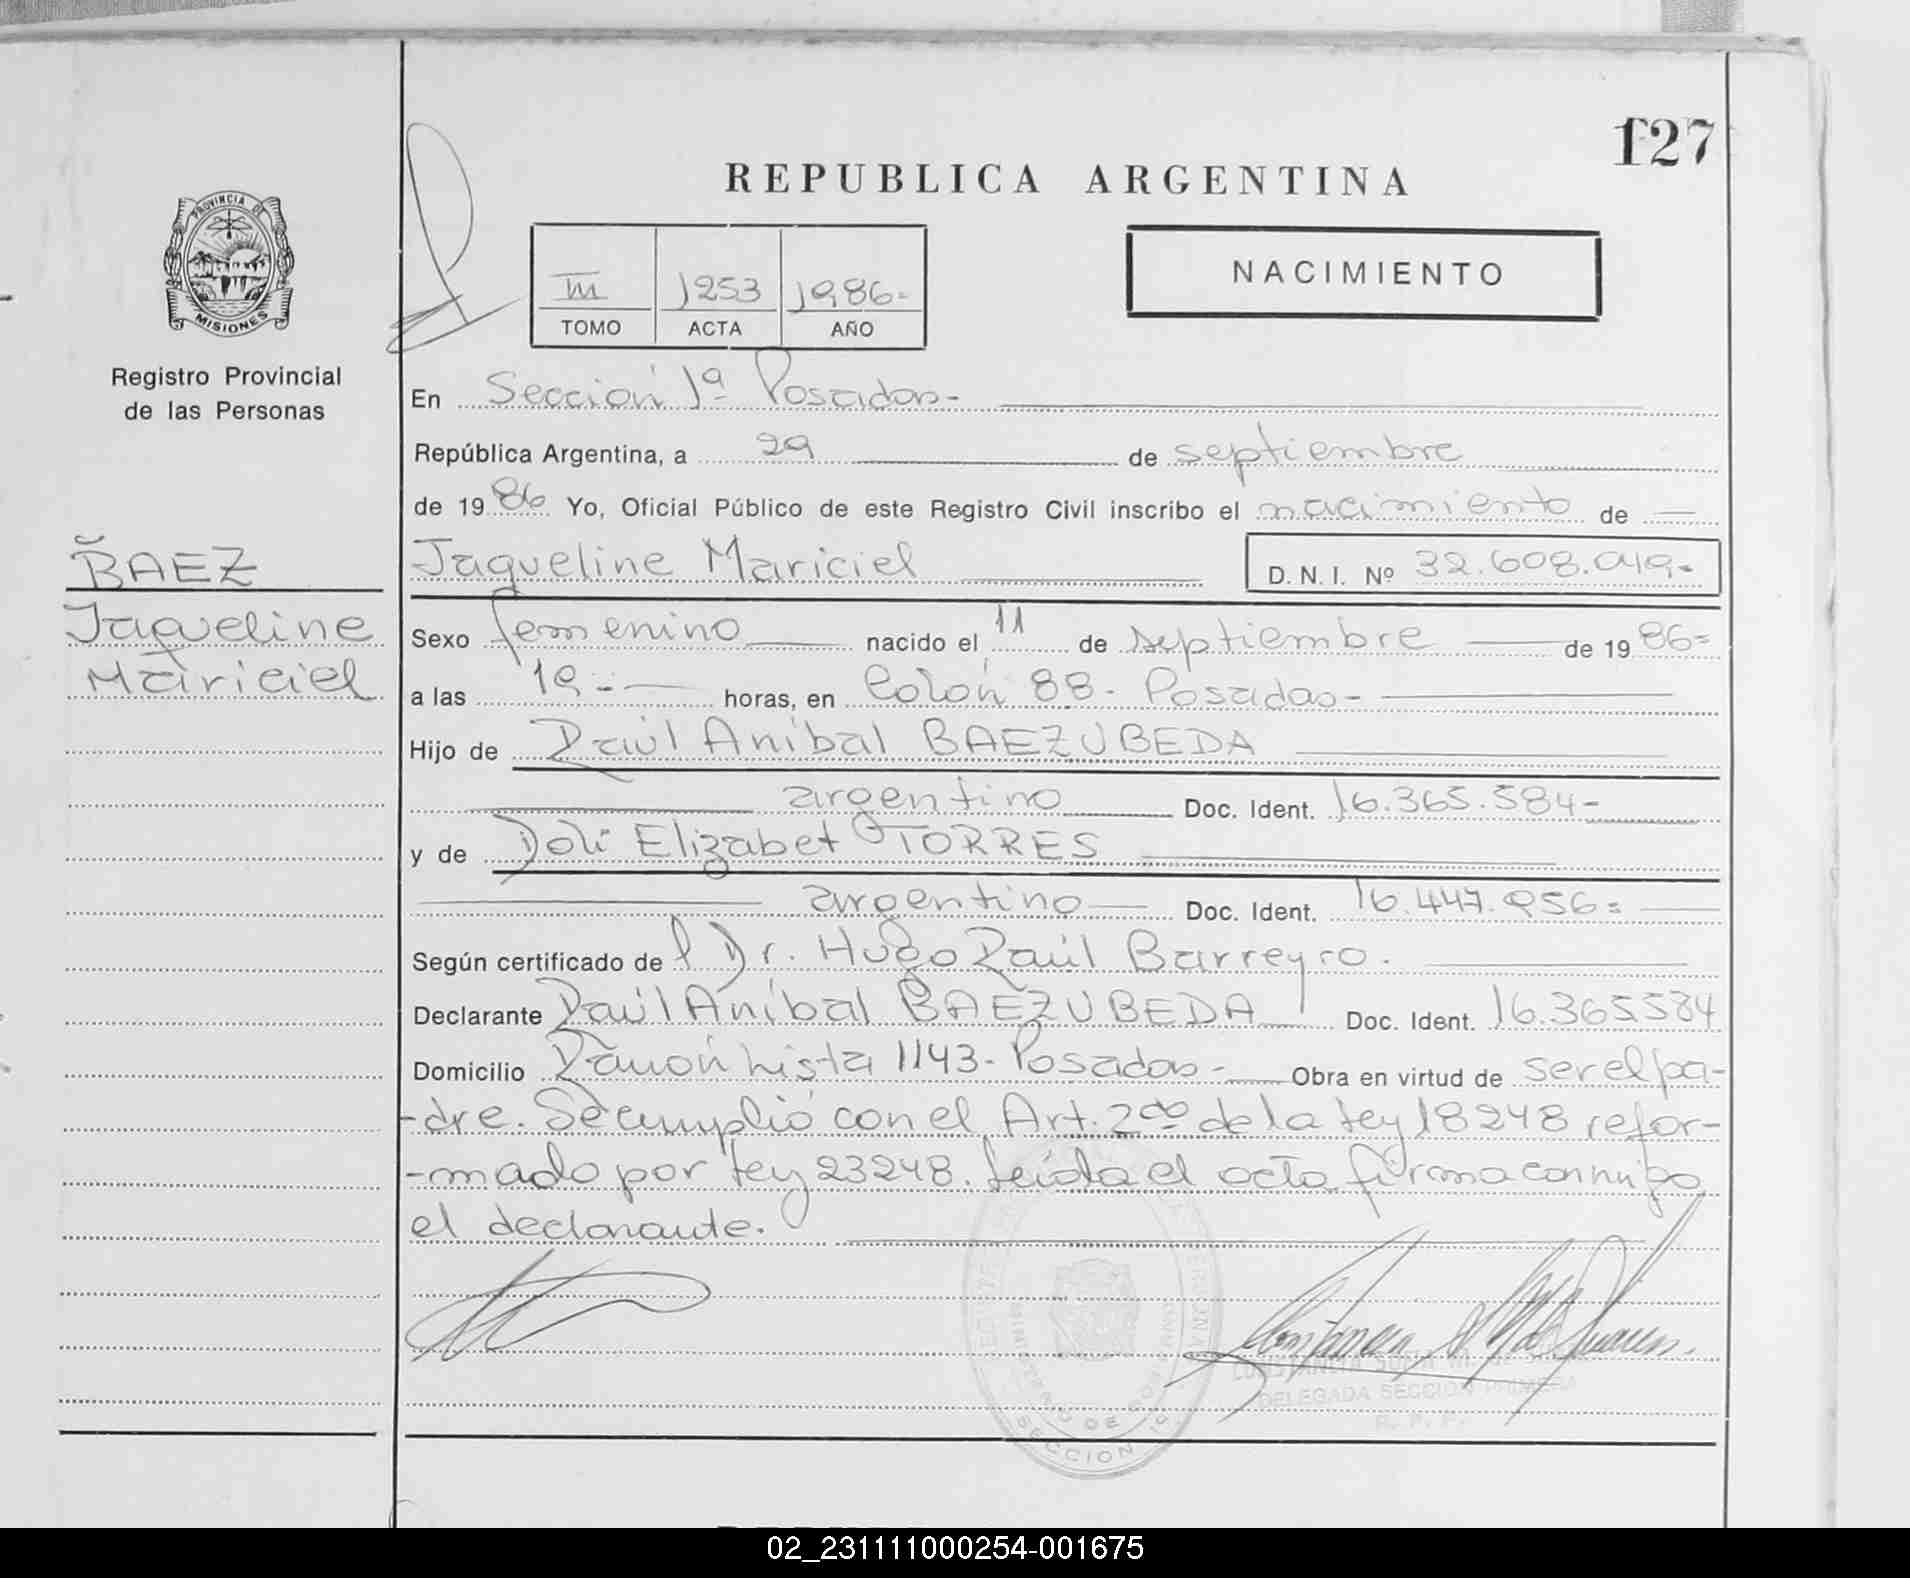 127
REPUBLICA ARGENTINA
PROVINCIA DE
MISIONES
Registro Provincial
de las Personas
III 1253 1986-
TOMO ACTA AÑO
NACIMIENTO
En Sección 1ª Posadas-
República Argentina, a 29 de septiembre
de 1986 Yo, Oficial Público de este Registro Civil inscribo el nacimiento de
BAEZ
Jaqueline
Mariciel
Jaqueline Mariciel D. N. I. Nº 32.608.049-
Sexo femenino nacido el 11 de septiembre de 1986=
a las 19 - horas, en Colón 88- Posadas-
Hijo de Raúl Aníbal BAEZ UBEDA
argentino Doc. Ident. 16.365.584-
y de Doli Elizabet TORRES
argentino Doc. Ident. 16.447.956=
Según certificado del Dr. Hugo Raúl Barreyro.
Declarante Raúl Aníbal BAEZ UBEDA Doc. Ident. 16.365584
Domicilio Ramón Lista 1143- Posadas- Obra en virtud de ser el pa-
-dre. Se cumplió con el Art. 2do de la Ley 18248 refor-
-mado por Ley 23248. Leída el acta firma conmigo
el declarante.
DELEGADA SECCION PRIMERA
R. P. P.
SECCION 1a.
02_231111000254-001675